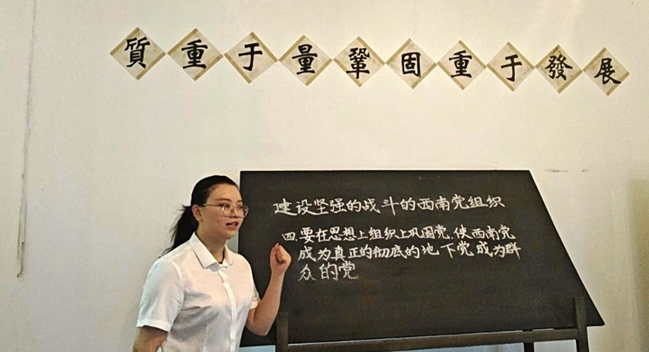 質重于量鞏固重于發展
建设坚强的战斗的西南党组织
四.要在思想上组织上巩固党,使西南党
成为真正的彻底的地下党成为群
众的党